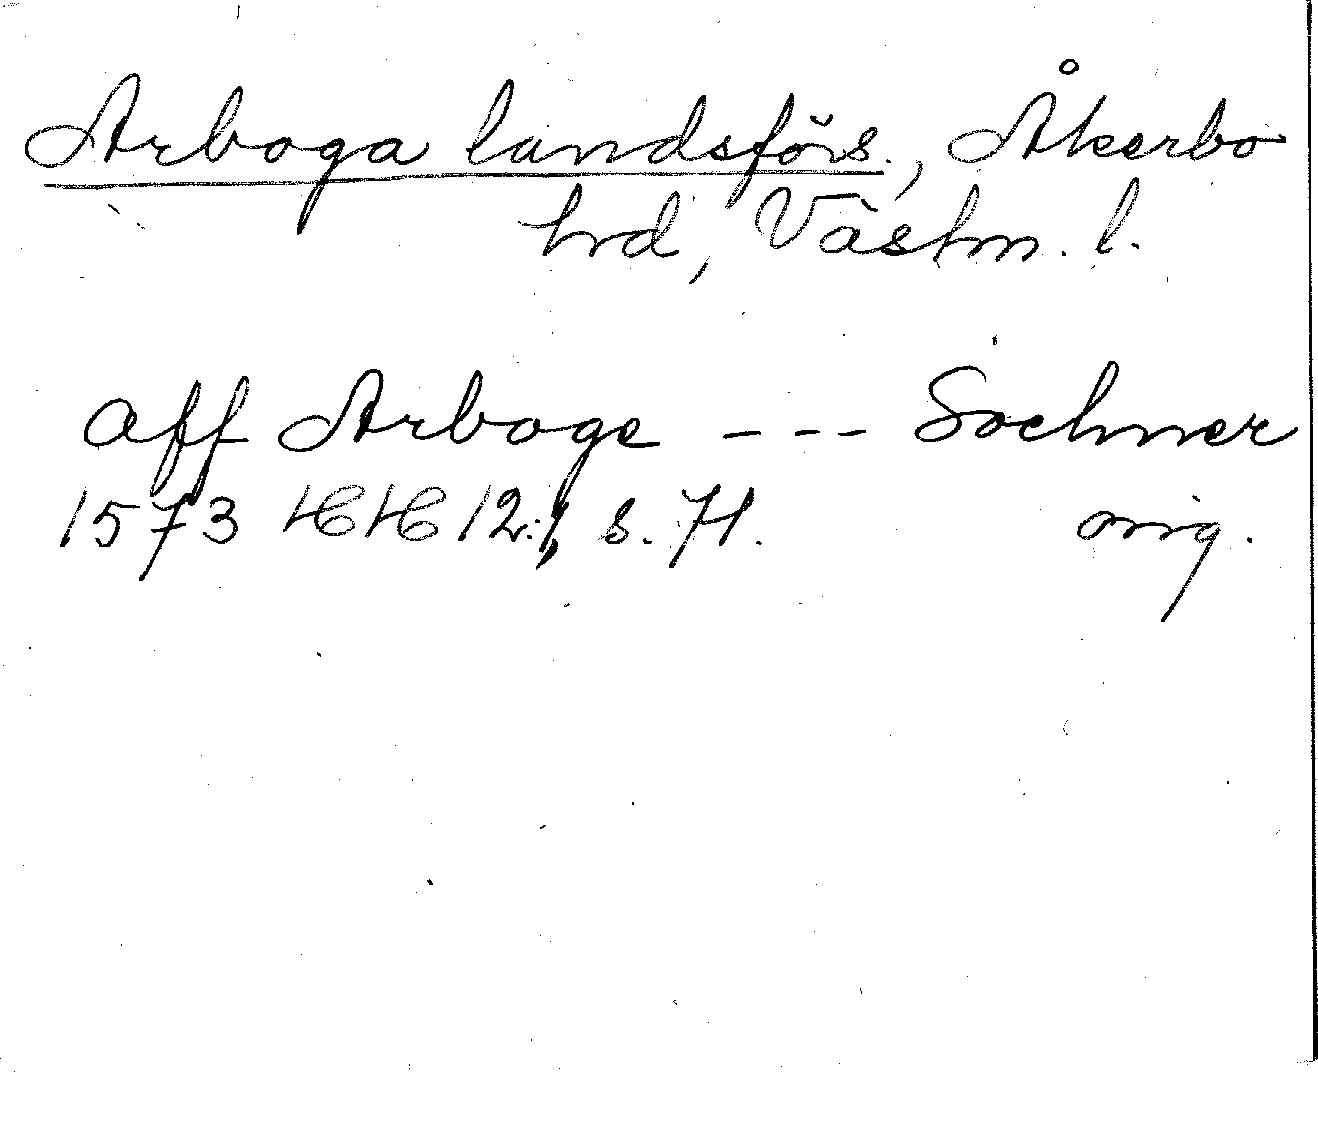 Arboga landsförs., Åkerbo
hrd, Västm. l.
aff Arboge - - - Sochner
1573 HH 12:1, s. 71. orig.